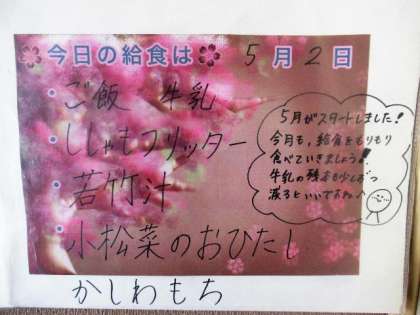 今日の給食は 5月2日
・ご飯 牛乳
・ししゃもフリッター
・若竹汁
・小松菜のおひたし
かしわもち
5月がスタートしました！
今月も、給食をもりもり
食べていきましょう！
牛乳の残も少しずつ
減るといいですね